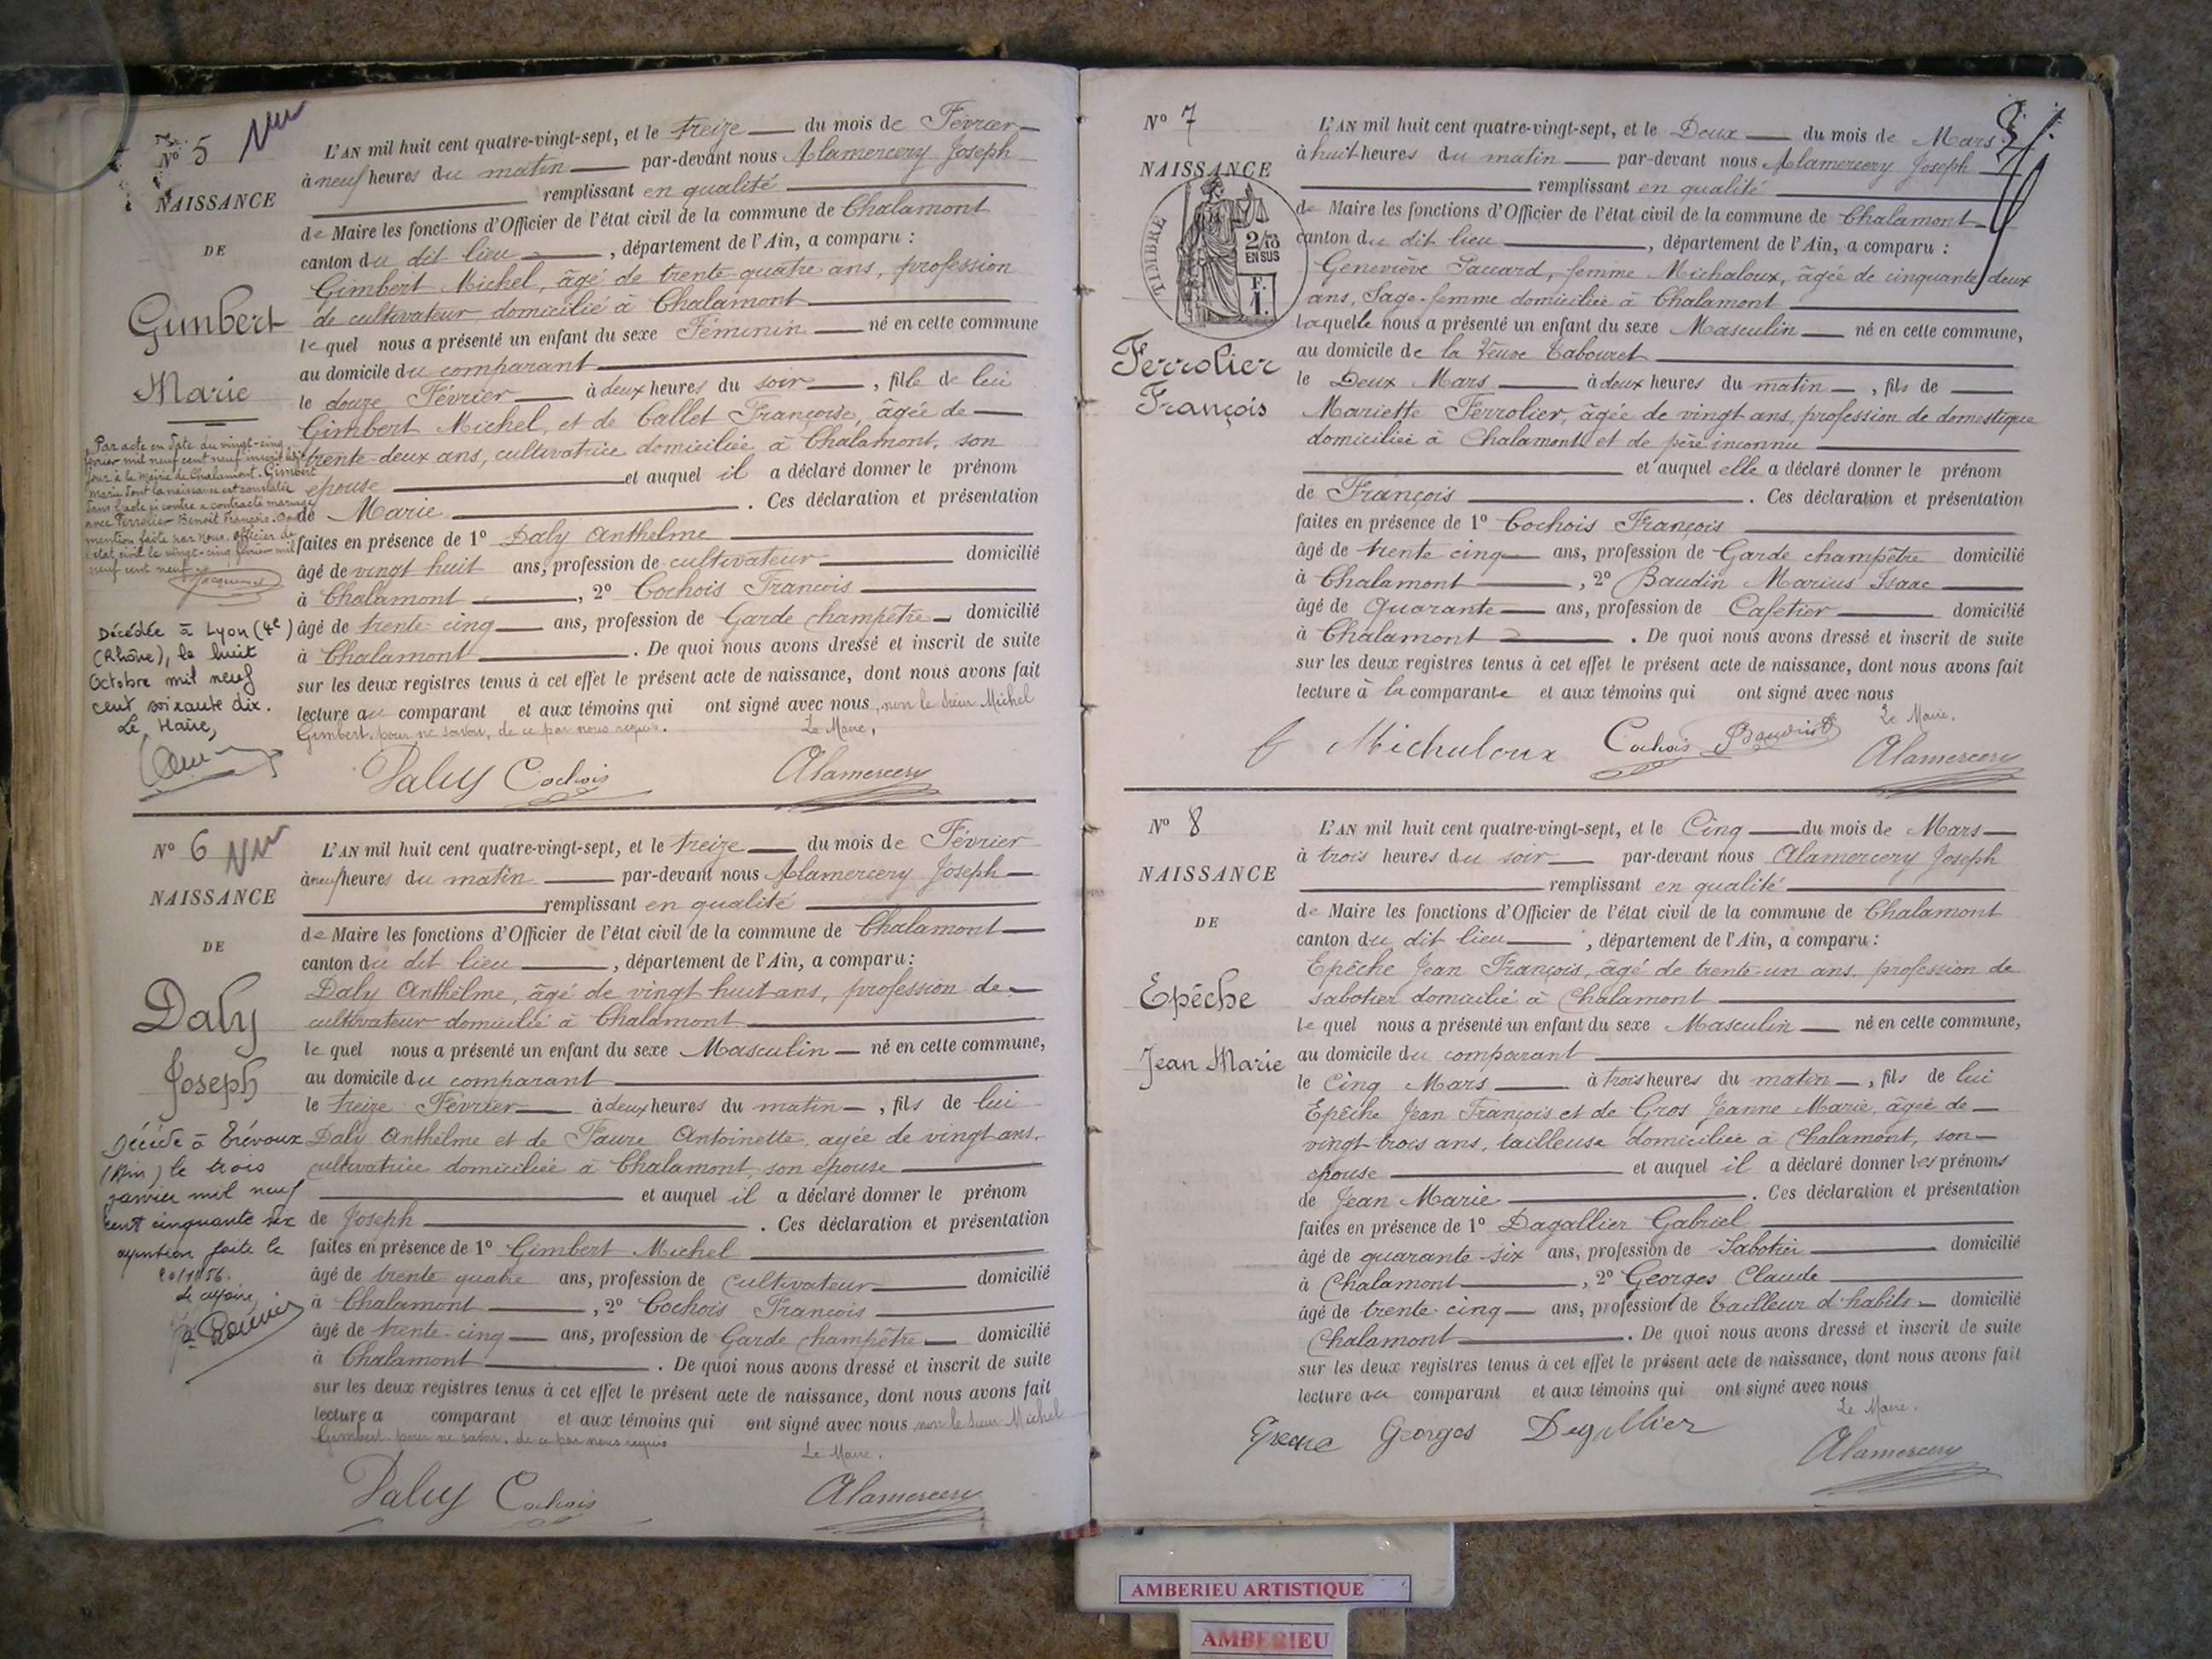 N° 5
NAISSANCE
DE
Gimbert
Marie
Par acte en date du vingt-cinq
février mil neuf cent neuf inscrit ledit
jour à la Mairie de Chalamont. Gimbert
Marie dont la naissance est constatée
dans l'acte ci contre a contracté mariage
avec Ferrolier Benoit François. Dont
mention faite par nous, officier de
l'état civil le vingt-cinq février mil
neuf cent neuf.
Décédée à Lyon (4e)
(Rhône), le huit
Octobre mil neuf
cent soixante dix.
Le Maire,
L'AN mil huit cent quatre-vingt-sept, et le treize du mois de Février
à neuf heures du matin par-devant nous Alamercery Joseph
remplissant en qualité
de Maire les fonctions d'Officier de l'état civil de la commune de Chalamont
canton du dit lieu, département de l'Ain, a comparu :
Gimbert Michel, âgé de trente-quatre ans, profession
de cultivateur domicilié à Chalamont
lequel nous a présenté un enfant du sexe Féminin né en cette commune
au domicile du comparant
le douze Février à deux heures du soir, fille de lui
Gimbert Michel, et de Callet Françoise, âgée de
trente-deux ans, cultivatrice domiciliée à Chalamont, son
épouse et auquel il a déclaré donner le prénom
de Marie. Ces déclaration et présentation
faites en présence de 1° Daly Anthelme
âgé de vingt huit ans, profession de cultivateur domicilié
à Chalamont, 2° Cochois François
âgé de trente-cinq ans, profession de Garde champêtre domicilié
à Chalamont. De quoi nous avons dressé et inscrit de suite
sur les deux registres tenus à cet effet le présent acte de naissance, dont nous avons fait
lecture au comparant et aux témoins qui ont signé avec nous, non le sieur Michel
Gimbert, pour ne savoir, de ce par nous requis.
Le Maire,
Daly Cochois Alamercery
N° 6
NAISSANCE
DE
Daly
Joseph
Décédé à Trévoux
(Ain) le trois
janvier mil neuf
cent cinquante six
mention faite le
L'AN mil huit cent quatre-vingt-sept, et le treize du mois de Février
à neuf heures du matin par-devant nous Alamercery Joseph
remplissant en qualité
de Maire les fonctions d'Officier de l'état civil de la commune de Chalamont
canton du dit lieu, département de l'Ain, a comparu :
Daly Anthelme, âgé de vingt huit ans, profession de
cultivateur domicilié à Chalamont
lequel nous a présenté un enfant du sexe Masculin né en cette commune,
au domicile du comparant
le treize Février à deux heures du matin, fils de lui
Daly Anthelme et de Faure Antoinette, agée de vingt ans,
cultivatrice domiciliée à Chalamont, son épouse
et auquel il a déclaré donner le prénom
de Joseph. Ces déclaration et présentation
faites en présence de 1° Gimbert Michel
âgé de trente quatre ans, profession de Cultivateur domicilié
à Chalamont, 2° Cochois François
âgé de trente-cinq ans, profession de Garde champêtre domicilié
à Chalamont. De quoi nous avons dressé et inscrit de suite
sur les deux registres tenus à cet effet le présent acte de naissance, dont nous avons fait
lecture a comparant et aux témoins qui ont signé avec nous non le sieur Michel
Gimbert pour ne savoir, de ce par nous requis
Le Maire.
Daly Cochois Alamercery
N° 7
NAISSANCE
TIMBRE
2/10
EN SUS
F.
1.
Ferrolier
François
L'AN mil huit cent quatre-vingt-sept, et le Deux du mois de Mars
à huit heures du matin par-devant nous Alamercery Joseph
remplissant en qualité
de Maire les fonctions d'Officier de l'état civil de la commune de Chalamont
canton du dit lieu, département de l'Ain, a comparu :
Geneviève Paccard, femme Michaloux, âgée de cinquante deux
ans, Sage-femme domiciliée à Chalamont
laquelle nous a présenté un enfant du sexe Masculin né en cette commune,
au domicile de la Veuve Tabouret
le Deux Mars à deux heures du matin, fils de
Mariette Ferrolier, âgée de vingt ans, profession de domestique
domiciliée à Chalamont et de père inconnu
et auquel elle a déclaré donner le prénom
de François. Ces déclaration et présentation
faites en présence de 1° Cochois François
âgé de trente cinq ans, profession de Garde champêtre domicilié
à Chalamont, 2° Baudin Marius Isaac
âgé de Quarante ans, profession de Cafetier domicilié
à Chalamont. De quoi nous avons dressé et inscrit de suite
sur les deux registres tenus à cet effet le présent acte de naissance, dont nous avons fait
lecture à la comparante et aux témoins qui ont signé avec nous
Le Maire.
f Michaloux Cochois Baudin Alamercery
N° 8
NAISSANCE
DE
Epêche
Jean Marie
L'AN mil huit cent quatre-vingt-sept, et le Cinq du mois de Mars
à trois heures du soir par-devant nous Alamercery Joseph
remplissant en qualité
de Maire les fonctions d'Officier de l'état civil de la commune de Chalamont
canton du dit lieu, département de l'Ain, a comparu :
Epêche Jean François, âgé de trente-un ans, profession de
sabotier domicilié à Chalamont
lequel nous a présenté un enfant du sexe Masculin né en cette commune,
au domicile du comparant
le Cinq Mars à trois heures du matin, fils de lui
Epêche Jean François et de Gros Jeanne Marie, âgée de
vingt trois ans, tailleuse domiciliée à Chalamont, son
épouse et auquel il a déclaré donner les prénoms
de Jean Marie. Ces déclaration et présentation
faites en présence de 1° Dagallier Gabriel
âgé de quarante-six ans, profession de Sabotier domicilié
à Chalamont, 2° Georges Claude
âgé de trente-cinq ans, profession de Tailleur d'habits domicilié
Chalamont. De quoi nous avons dressé et inscrit de suite
sur les deux registres tenus à cet effet le présent acte de naissance, dont nous avons fait
lecture au comparant et aux témoins qui ont signé avec nous
Le Maire.
Georges Degallier Alamercery
AMBERIEU ARTISTIQUE
AMBERIEU